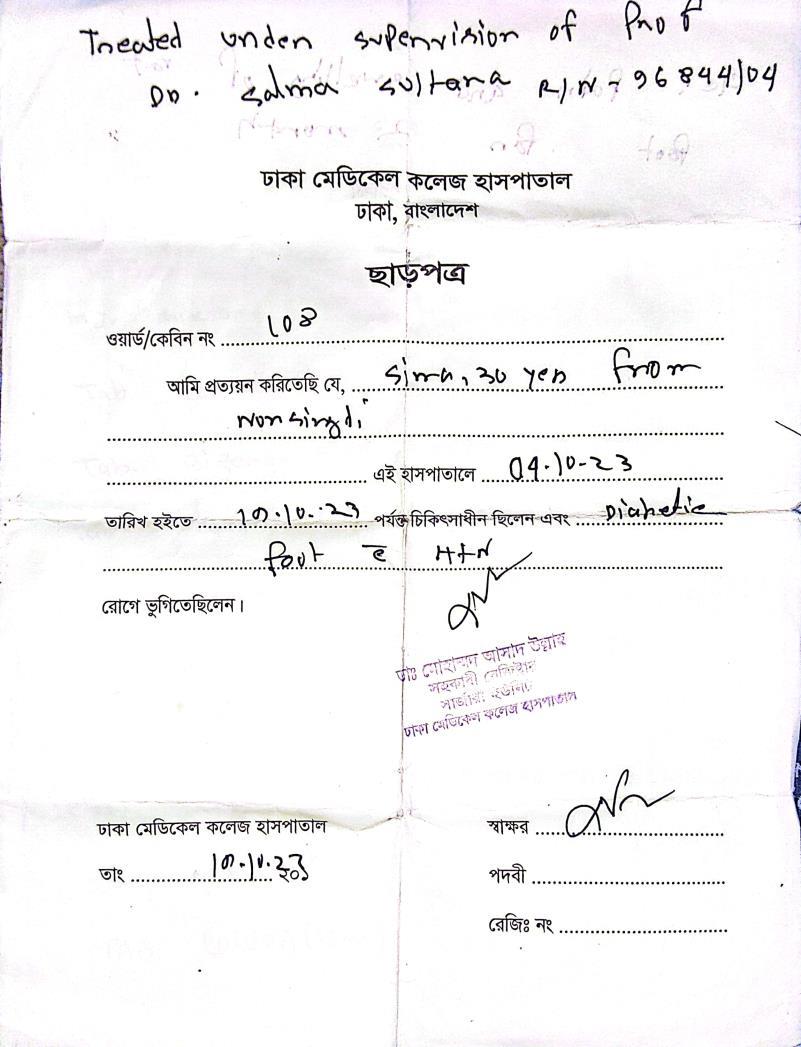 Treated under supervision of Prof
Dr. Salma Sultana R/N - 96844/04
ঢাকা মেডিকেল কলেজ হাসপাতাল
ঢাকা, বাংলাদেশ
ছাড়পত্র
ওয়ার্ড/কেবিন নং 108
আমি প্রত্যয়ন করিতেছি যে, Sima, 30 yrs from
Norsingdi
এই হাসপাতালে 09.10-23
তারিখ হইতে 17.10.23 পর্যন্ত চিকিৎসাধীন ছিলেন এবং Diabetic
foot c HTN
রোগে ভুগিতেছিলেন।
ডাঃ মোহাম্মদ আসাদ উল্লাহ
সহকারী রেজিস্ট্রার
ঢাকা মেডিকেল কলেজ হাসপাতাল
ঢাকা মেডিকেল কলেজ হাসপাতাল
স্বাক্ষর
তাং 17.10.23
পদবী
রেজিঃ নং